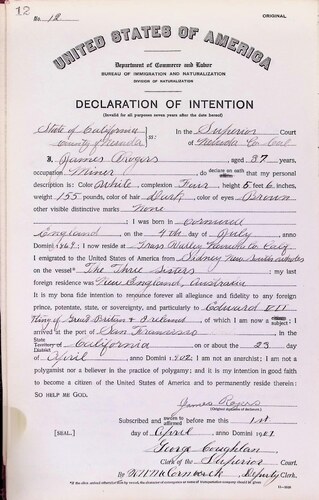 12
No. 12 ORIGINAL
UNITED STATES OF AMERICA
Department of Commerce and Labor
BUREAU OF IMMIGRATION AND NATURALIZATION
DIVISION OF NATURALIZATION
DECLARATION OF INTENTION
(Invalid for all purposes seven years after the date hereof)
State of California
County of Nevada ss: In the Superior Court
of Nevada Co. Cal
I, James Rogers, aged 37 years,
occupation Miner, do declare on oath affirm that my personal
description is: Color White, complexion Fair, height 5 feet 6 inches,
weight 155 pounds, color of hair Dark, color of eyes Brown
other visible distinctive marks None
I was born in Cornwall
England on the 4th day of July, anno
Domini 1869; I now reside at Grass Valley Nevada Co Calif
I emigrated to the United States of America from Sidney New South Wales
on the vessel The Three Sisters; my last
foreign residence was New England, Australia
It is my bona fide intention to renounce forever all allegiance and fidelity to any foreign
prince, potentate, state, or sovereignty, and particularly to Edward VII
King of Great Britain & Ireland, of which I am now a subject; I
arrived at the port of San Francisco, in the
State Territory District of California on or about the 23 day
of April, anno Domini 1902; I am not an anarchist; I am not a
polygamist nor a believer in the practice of polygamy; and it is my intention in good faith
to become a citizen of the United States of America and to permanently reside therein:
SO HELP ME GOD.
James Rogers
(Original signature of declarant.)
Subscribed and sworn to affirmed before me this 1st
[SEAL.] day of April, anno Domini 1907.
George Coughlan
Clerk of the Superior Court.
By Deputy Clerk.